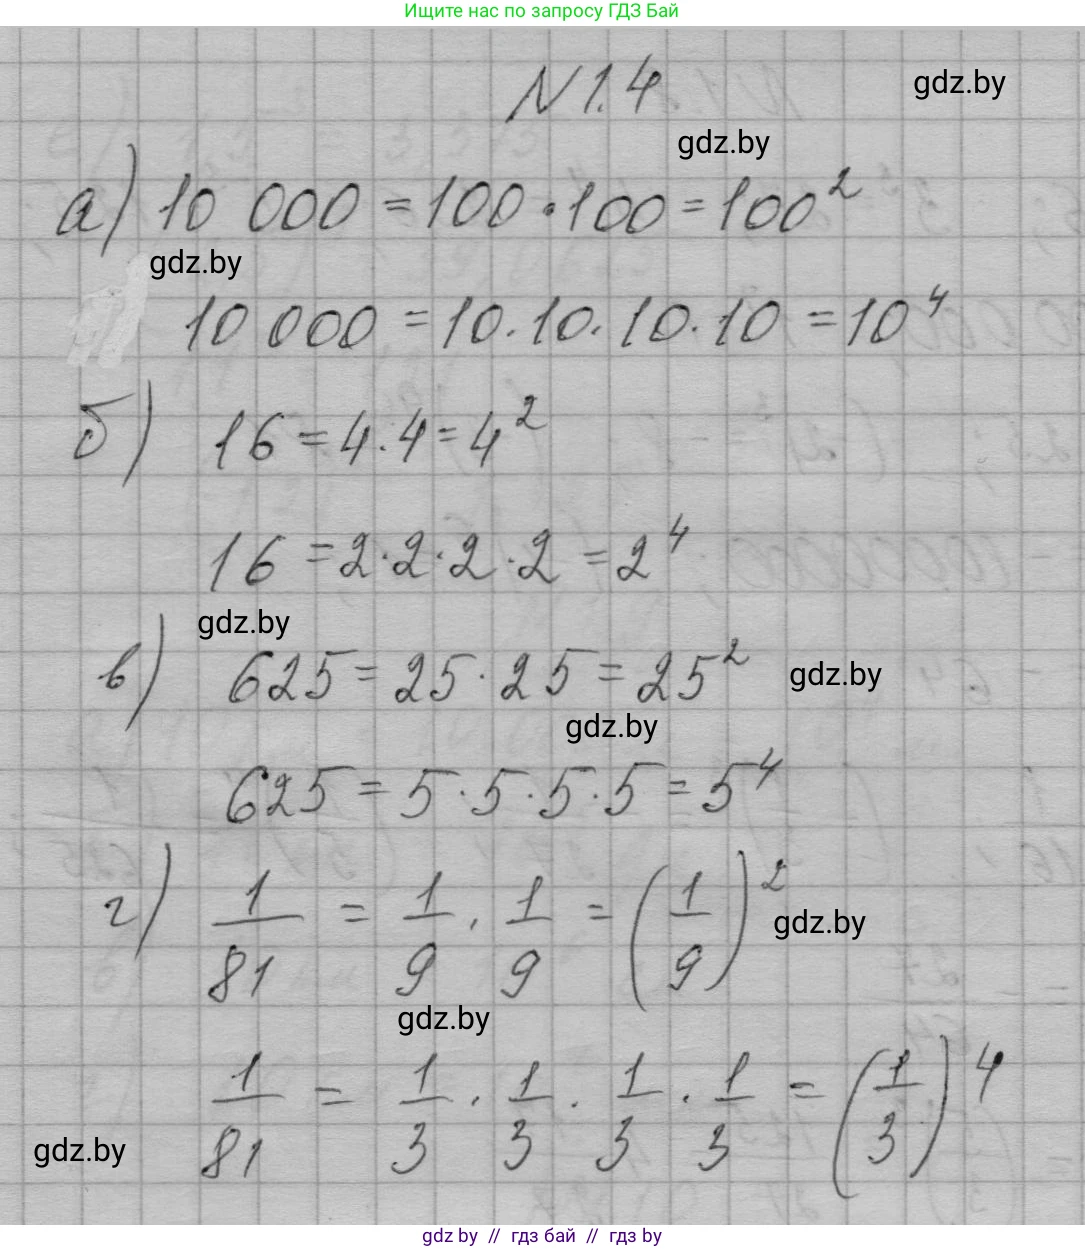 Ищите нас по запросу ГДЗ Бай
N 1.4
gdz.by
gdz.by
а) 10 000 = 100 · 100 = 100²
gdz.by
10 000 = 10 · 10 · 10 · 10 = 10⁴
б) 16 = 4 · 4 = 4²
16 = 2 · 2 · 2 · 2 = 2⁴
gdz.by
в) 625 = 25 · 25 = 25²
gdz.by
gdz.by
625 = 5 · 5 · 5 · 5 = 5⁴
г) 1/81 = 1/9 · 1/9 = (1/9)²
gdz.by
gdz.by
1/81 = 1/3 · 1/3 · 1/3 · 1/3 = (1/3)⁴
gdz.by
gdz.by // гдз бай // gdz.by